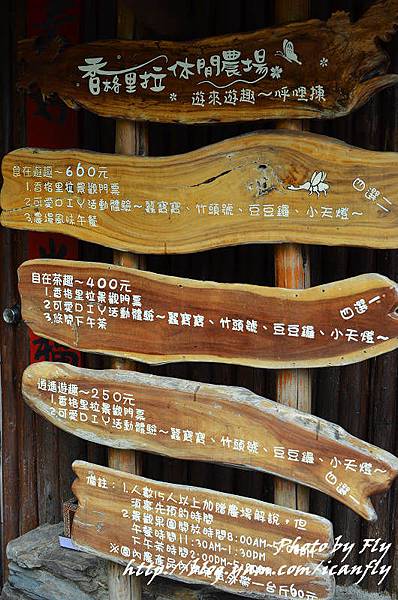 香格里拉休閒農場
遊來遊趣～呼哩揀
自在遊趣～660元
1.香格里拉景觀門票
2.可愛DIY活動體驗～蠶寶寶、竹頭號、豆豆鑼、小天燈～
3.農場風味午餐
四選一
自在茶趣～400元
1.香格里拉景觀門票
2.可愛DIY活動體驗～蠶寶寶、竹頭號、豆豆鑼、小天燈～
3.悠閒下午茶
四選一
逍遙遊趣～250元
1.香格里拉景觀門票
2.可愛DIY活動體驗～蠶寶寶、竹頭號、豆豆鑼、小天燈～
四選一
備註：1.人數15人以上加贈農場解說，但
須事先預約時間
2.景觀果園開放時間8:00AM-5:
午餐時間11:30AM-1:30PM
下午茶時間2:00PM-5:
Photo by Fly